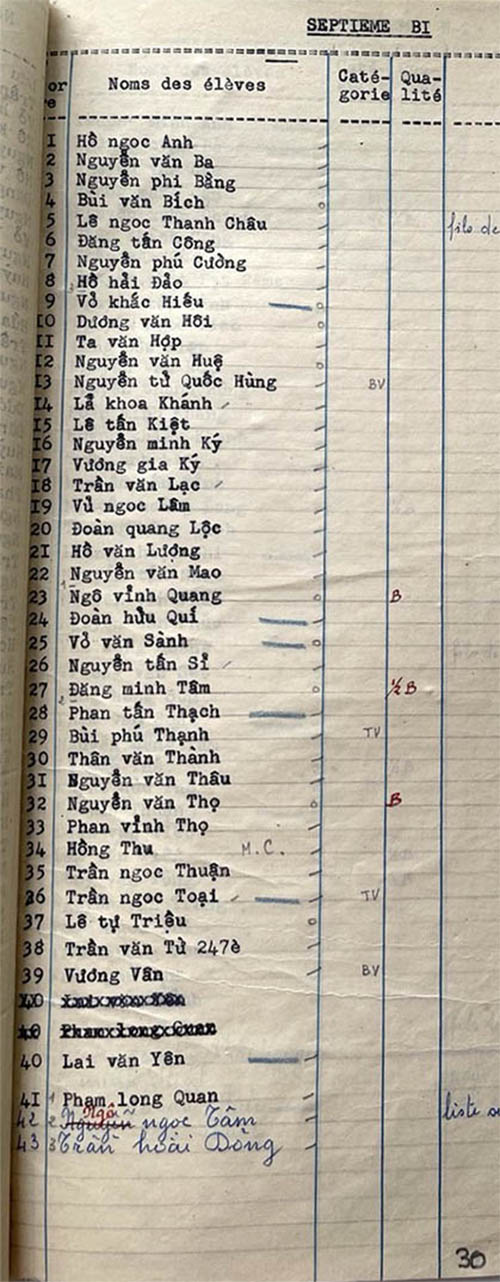 SEPTIEME BI
or Noms des élèves Caté- Qua-
re gorie lité
I Hồ ngọc Anh
2 Nguyễn văn Ba
3 Nguyễn phi Bằng
4 Bùi văn Bích
5 Lê ngọc Thanh Châu fils de
6 Đăng tấn Công
7 Nguyễn phú Cường
8 Hồ hải Đảo
9 Vỏ khắc Hiếu
IO Dương văn Hôi
II Ta văn Hợp
I2 Nguyễn văn Huệ
I3 Nguyễn tử Quốc Hùng BV
I4 Lã khoa Khánh
I5 Lê tấn Kiệt
I6 Nguyễn minh Ký
I7 Vương gia Ký
I8 Trần văn Lạc
I9 Vủ ngọc Lâm
20 Đoàn quang Lộc
2I Hồ văn Lượng
22 Nguyễn văn Mao
23 Ngô vỉnh Quang B
24 Đoàn hửu Quí
25 Vỏ văn Sành
26 Nguyễn tấn Sỉ
27 Đăng minh Tâm ½ B
28 Phan tấn Thạch
29 Bùi phú Thạnh TV
30 Thân văn Thành
3I Nguyễn văn Thâu
32 Nguyễn văn Thọ B
33 Phan vỉnh Thọ
34 Hồng Thu M.C.
35 Trần ngọc Thuận
36 Trần ngọc Toại TV
37 Lê tự Triệu
38 Trần văn Tử 247è
39 Vương Vân BV
40 Lai văn Yên
40 Phạm long Quan
40 Lai văn Yên
4I 1 Phạm long Quan liste
42 2 Nguyễn Ngô ngọc Tâm
43 3 Trần hoài Dông
30